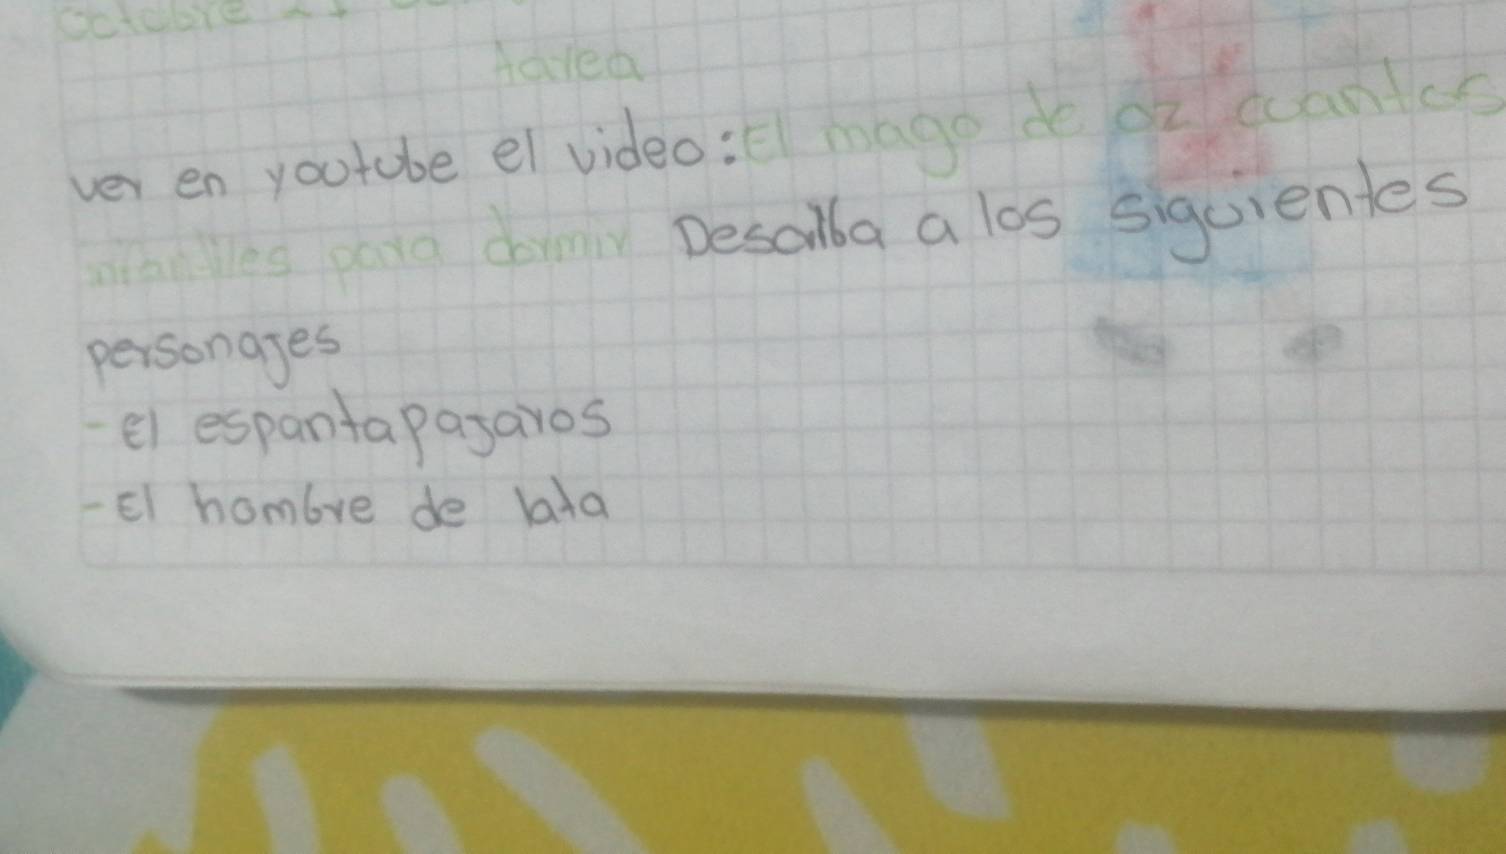 octobre 21
tarea
ver en youtube el video: El mago de oz cuantos
infantiles para dormir Describa a los siguientes
personajes
- el espantapajaros
- El hombre de lata